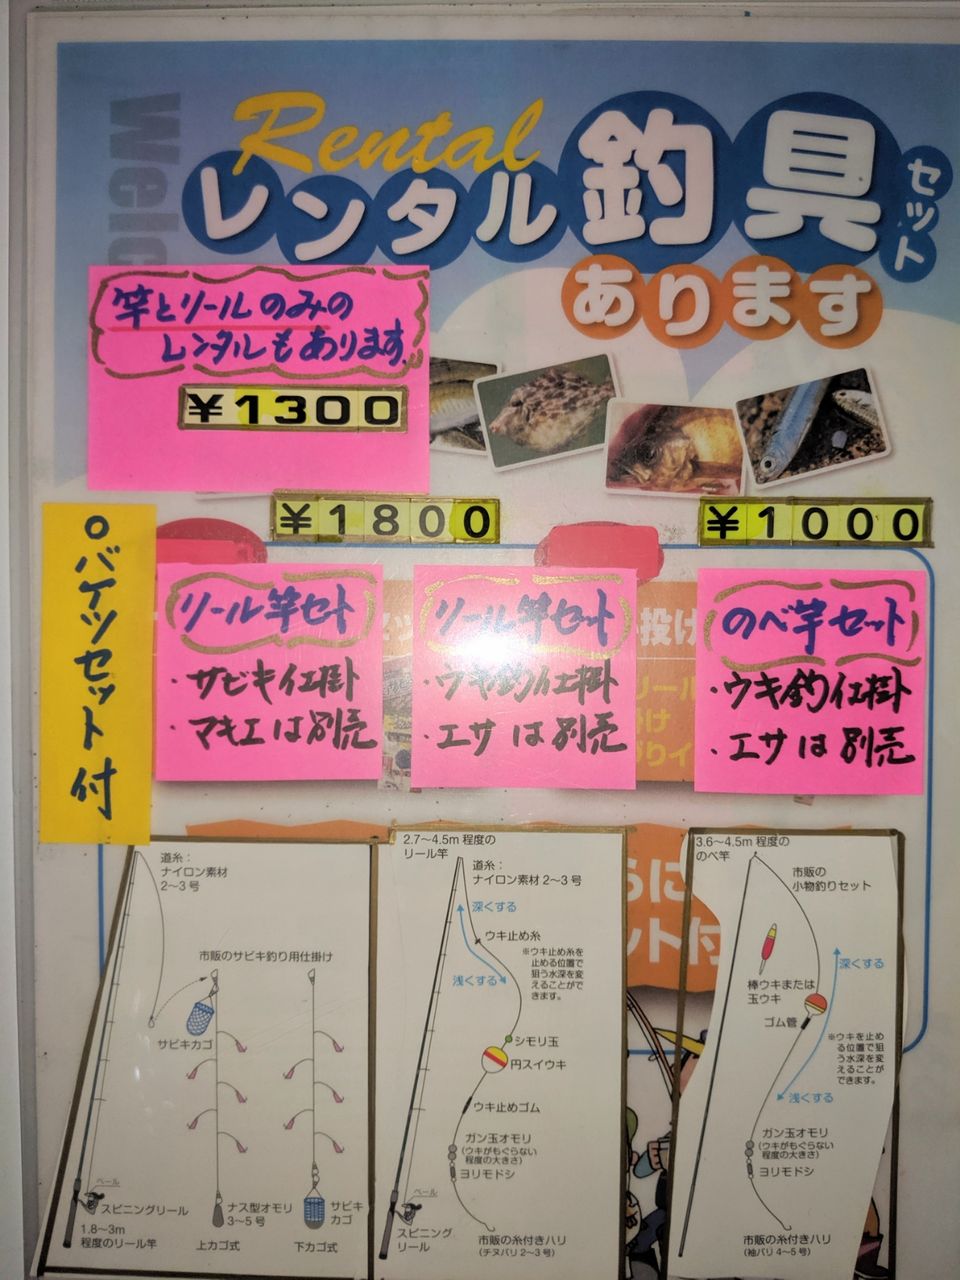 Rental
レンタル釣具セット
あります
竿とリールのみの
レンタルもあります。
¥1300
¥1800
¥1000
バケツセット付
リール竿セット
・サビキ仕掛
・マキエは別売
リール竿セット
・ウキ釣仕掛
・エサは別売
のべ竿セット
・ウキ釣仕掛
・エサは別売
投げ
道糸:
ナイロン素材
2〜3号
市販のサビキ釣り用仕掛け
サビキカゴ
ベール
スピニングリール
1.8〜3m
程度のリール竿
ナス型オモリ
3〜5号
上カゴ式
サビキ
カゴ
下カゴ式
2.7〜4.5m 程度の
リール竿
道糸:
ナイロン素材 2〜3号
深くする
ウキ止め糸
※ウキ止め糸を
止める位置で
狙う水深を変
えることがで
きます。
浅くする
シモリ玉
円スイウキ
ウキ止めゴム
ガン玉オモリ
(ウキがもぐらない
程度の大きさ)
ヨリモドシ
ベール
スピニング
リール
市販の糸付きハリ
(チヌバリ 2〜3号)
3.6〜4.5m 程度の
のべ竿
市販の
小物釣りセット
深くする
棒ウキまたは
玉ウキ
ゴム管
※ウキを止め
る位置で狙
う水深を変
えることが
できます。
浅くする
ガン玉オモリ
(ウキがもぐらない
程度の大きさ)
ヨリモドシ
市販の糸付きハリ
(袖バリ 4〜5号)